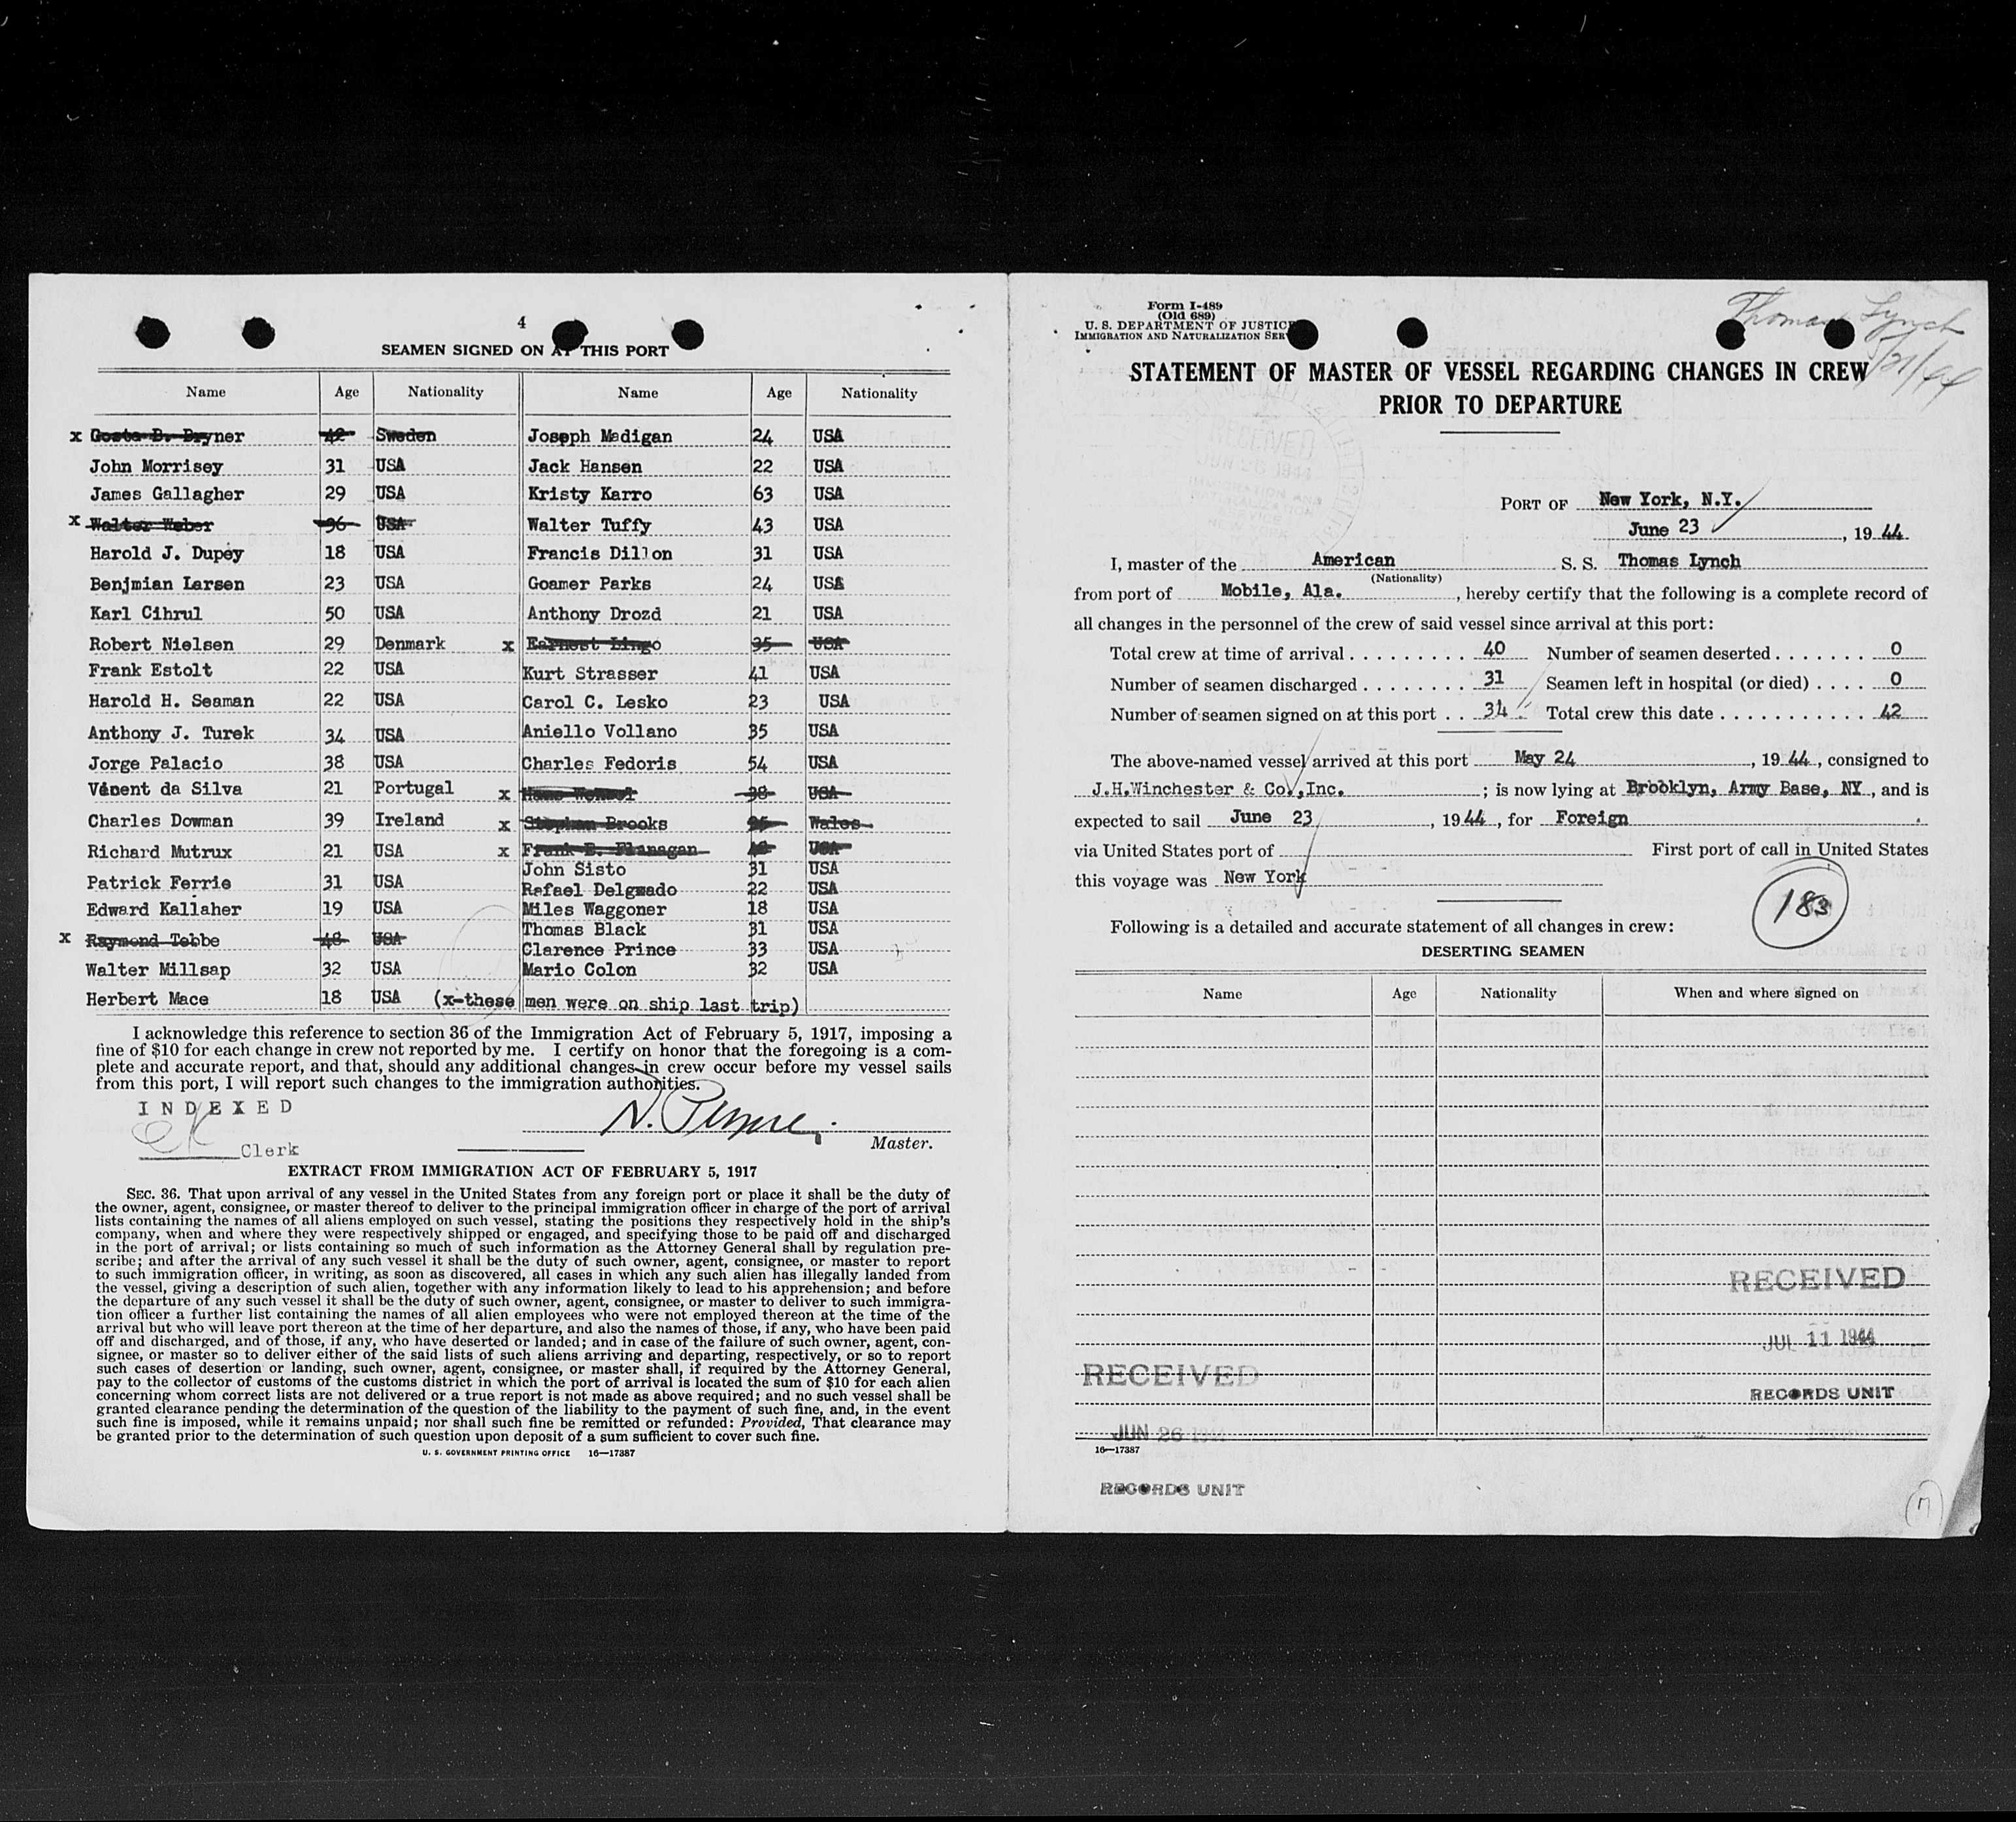 4
SEAMEN SIGNED ON AT THIS PORT
Name Age Nationality Name Age Nationality
x Gosta B. Bryner 42 Sweden Joseph Madigan 24 USA
John Morrisey 31 USA Jack Hansen 22 USA
James Gallagher 29 USA Kristy Karro 63 USA
x Walter Weber 36 USA Walter Tuffy 43 USA
Harold J. Dupey 18 USA Francis Dillon 31 USA
Benjmian Larsen 23 USA Goamer Parks 24 USA
Karl Cihrul 50 USA Anthony Drozd 21 USA
Robert Nielsen 29 Denmark x Earnest Lingo 35 USA
Frank Estolt 22 USA Kurt Strasser 41 USA
Harold H. Seaman 22 USA Carol C. Lesko 23 USA
Anthony J. Turek 34 USA Aniello Vollano 35 USA
Jorge Palacio 38 USA Charles Fedoris 54 USA
Vincent da Silva 21 Portugal x Hans 38 USA
Charles Dowman 39 Ireland x Stephan Brooks Wales
Richard Mutrux 21 USA x Frank B. Flanagan USA
John Sisto 31 USA
Patrick Ferrie 31 USA Rafael Delgmado 22 USA
Edward Kallaher 19 USA Miles Waggoner 18 USA
Thomas Black 31 USA
x Raymond Tebbe 48 USA Clarence Prince 33 USA
Walter Millsap 32 USA Mario Colon 32 USA
Herbert Mace 18 USA (x-these men were on ship last trip)
I acknowledge this reference to section 36 of the Immigration Act of February 5, 1917, imposing a
fine of $10 for each change in crew not reported by me. I certify on honor that the foregoing is a com-
plete and accurate report, and that, should any additional changes in crew occur before my vessel sails
from this port, I will report such changes to the immigration authorities.
INDEXED
Clerk
N.
Master.
EXTRACT FROM IMMIGRATION ACT OF FEBRUARY 5, 1917
SEC. 36. That upon arrival of any vessel in the United States from any foreign port or place it shall be the duty of
the owner, agent, consignee, or master thereof to deliver to the principal immigration officer in charge of the port of arrival
lists containing the names of all aliens employed on such vessel, stating the positions they respectively hold in the ship's
company, when and where they were respectively shipped or engaged, and specifying those to be paid off and discharged
in the port of arrival; or lists containing so much of such information as the Attorney General shall by regulation pre-
scribe; and after the arrival of any such vessel it shall be the duty of such owner, agent, consignee, or master to report
to such immigration officer, in writing, as soon as discovered, all cases in which any such alien has illegally landed from
the vessel, giving a description of such alien, together with any information likely to lead to his apprehension; and before
the departure of any such vessel it shall be the duty of such owner, agent, consignee, or master to deliver to such immigra-
tion officer a further list containing the names of all alien employees who were not employed thereon at the time of the
arrival but who will leave port thereon at the time of her departure, and also the names of those, if any, who have been paid
off and discharged, and of those, if any, who have deserted or landed; and in case of the failure of such owner, agent, con-
signee, or master so to deliver either of the said lists of such aliens arriving and departing, respectively, or so to report
such cases of desertion or landing, such owner, agent, consignee, or master shall, if required by the Attorney General,
pay to the collector of customs of the customs district in which the port of arrival is located the sum of $10 for each alien
concerning whom correct lists are not delivered or a true report is not made as above required; and no such vessel shall be
granted clearance pending the determination of the question of the liability to the payment of such fine, and, in the event
such fine is imposed, while it remains unpaid; nor shall such fine be remitted or refunded: Provided, That clearance may
be granted prior to the determination of such question upon deposit of a sum sufficient to cover such fine.
U. S. GOVERNMENT PRINTING OFFICE 16—17387
Form I-489
(Old 689)
U. S. DEPARTMENT OF JUSTICE
IMMIGRATION AND NATURALIZATION SER
Thomas Lynch
5/21/44
STATEMENT OF MASTER OF VESSEL REGARDING CHANGES IN CREW
PRIOR TO DEPARTURE
RECEIVED
JUN 26 1944
PORT OF New York, N.Y.
June 23, 1944
I, master of the American S. S. Thomas Lynch
(Nationality)
from port of Mobile, Ala., hereby certify that the following is a complete record of
all changes in the personnel of the crew of said vessel since arrival at this port:
Total crew at time of arrival 40 Number of seamen deserted 0
Number of seamen discharged 31 Seamen left in hospital (or died) 0
Number of seamen signed on at this port 34 Total crew this date 42
The above-named vessel arrived at this port May 24, 1944, consigned to
J.H.Winchester & Co.,Inc.; is now lying at Brooklyn, Army Base, NY, and is
expected to sail June 23, 1944, for Foreign
via United States port of First port of call in United States
this voyage was New York
183
Following is a detailed and accurate statement of all changes in crew:
DESERTING SEAMEN
Name Age Nationality When and where signed on
RECEIVED
JUL 11 1944
RECORDS UNIT
RECEIVED
JUN 26 1944
16—17387
RECORDS UNIT